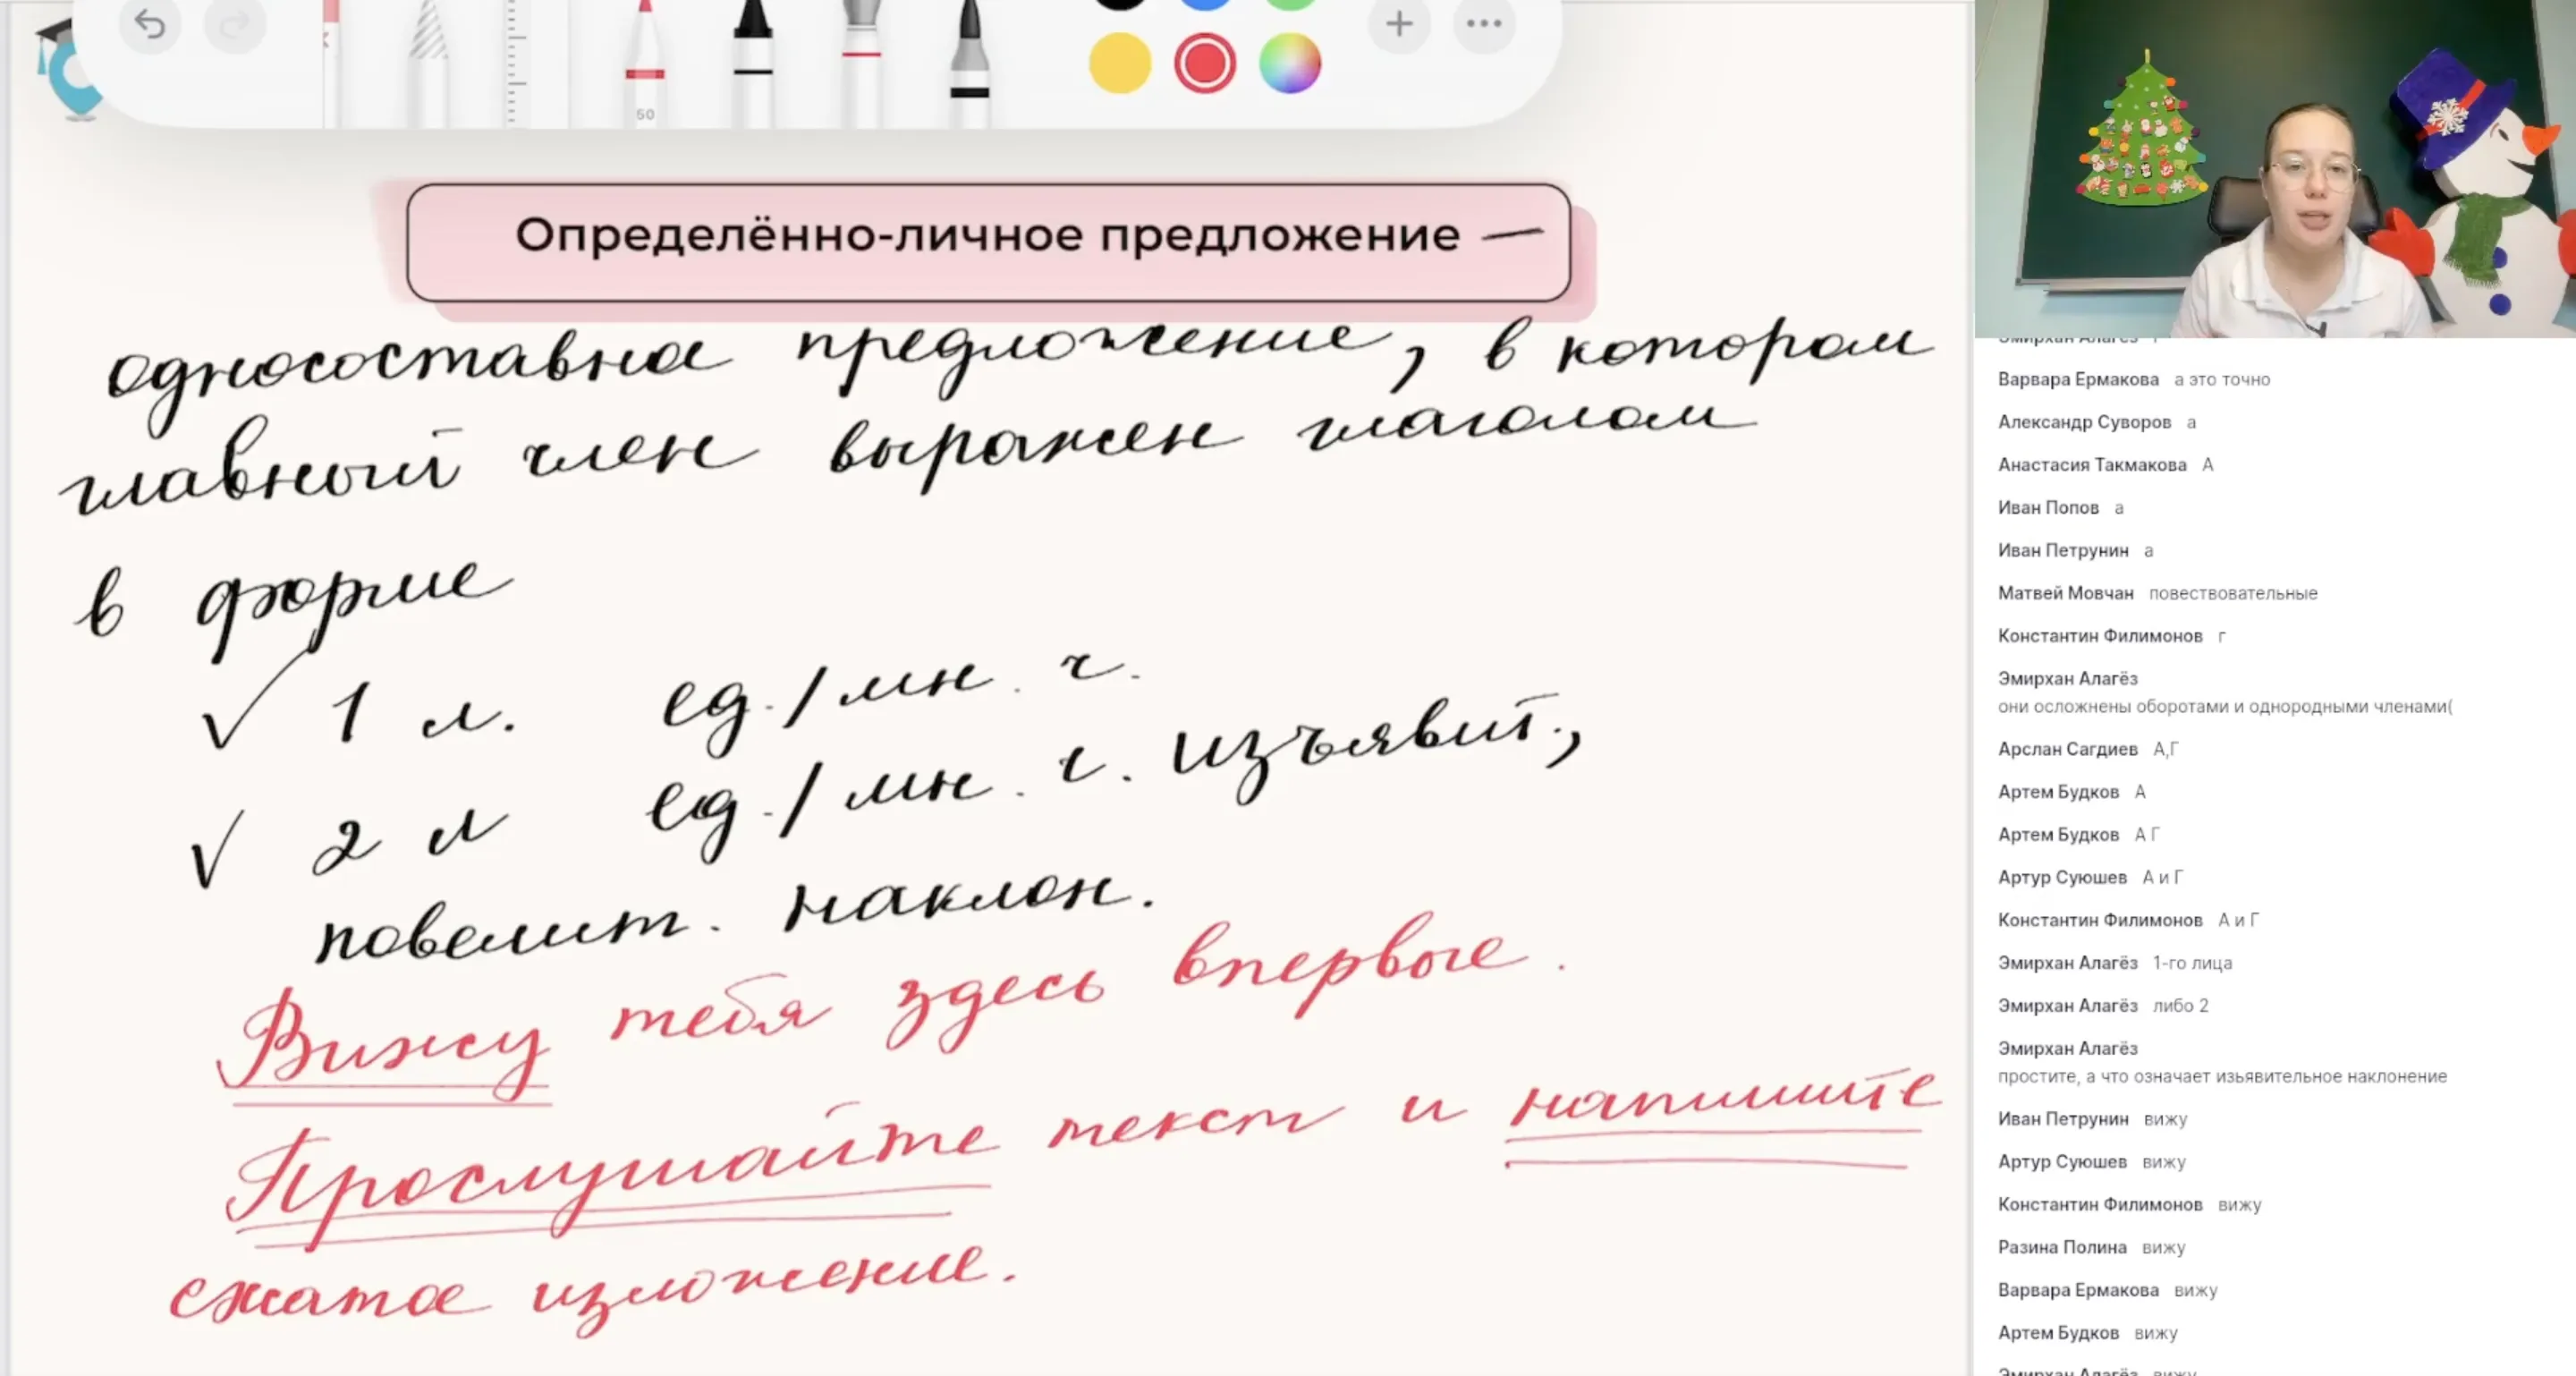 50
Определённо-личное предложение —
односоставное предложение, в котором
главный член выражен глаголом
в форме
✓ 1 л. ед./мн. ч.
✓ 2 л ед./мн. ч. изъявит.,
повелит. наклон.
Вижу тебя здесь впервые.
Прослушайте текст и напишите
сжатое изложение.
Эмирхан Алагёз г
Варвара Ермакова а это точно
Александр Суворов а
Анастасия Такмакова А
Иван Попов а
Иван Петрунин а
Матвей Мовчан повествовательные
Константин Филимонов г
Эмирхан Алагёз
они осложнены оборотами и однородными членами(
Арслан Сагдиев А,Г
Артем Будков А
Артем Будков А Г
Артур Суюшев А и Г
Константин Филимонов А и Г
Эмирхан Алагёз 1-го лица
Эмирхан Алагёз либо 2
Эмирхан Алагёз
простите, а что означает изьявительное наклонение
Иван Петрунин вижу
Артур Суюшев вижу
Константин Филимонов вижу
Разина Полина вижу
Варвара Ермакова вижу
Артем Будков вижу
Эмирхан Алагёз вижу